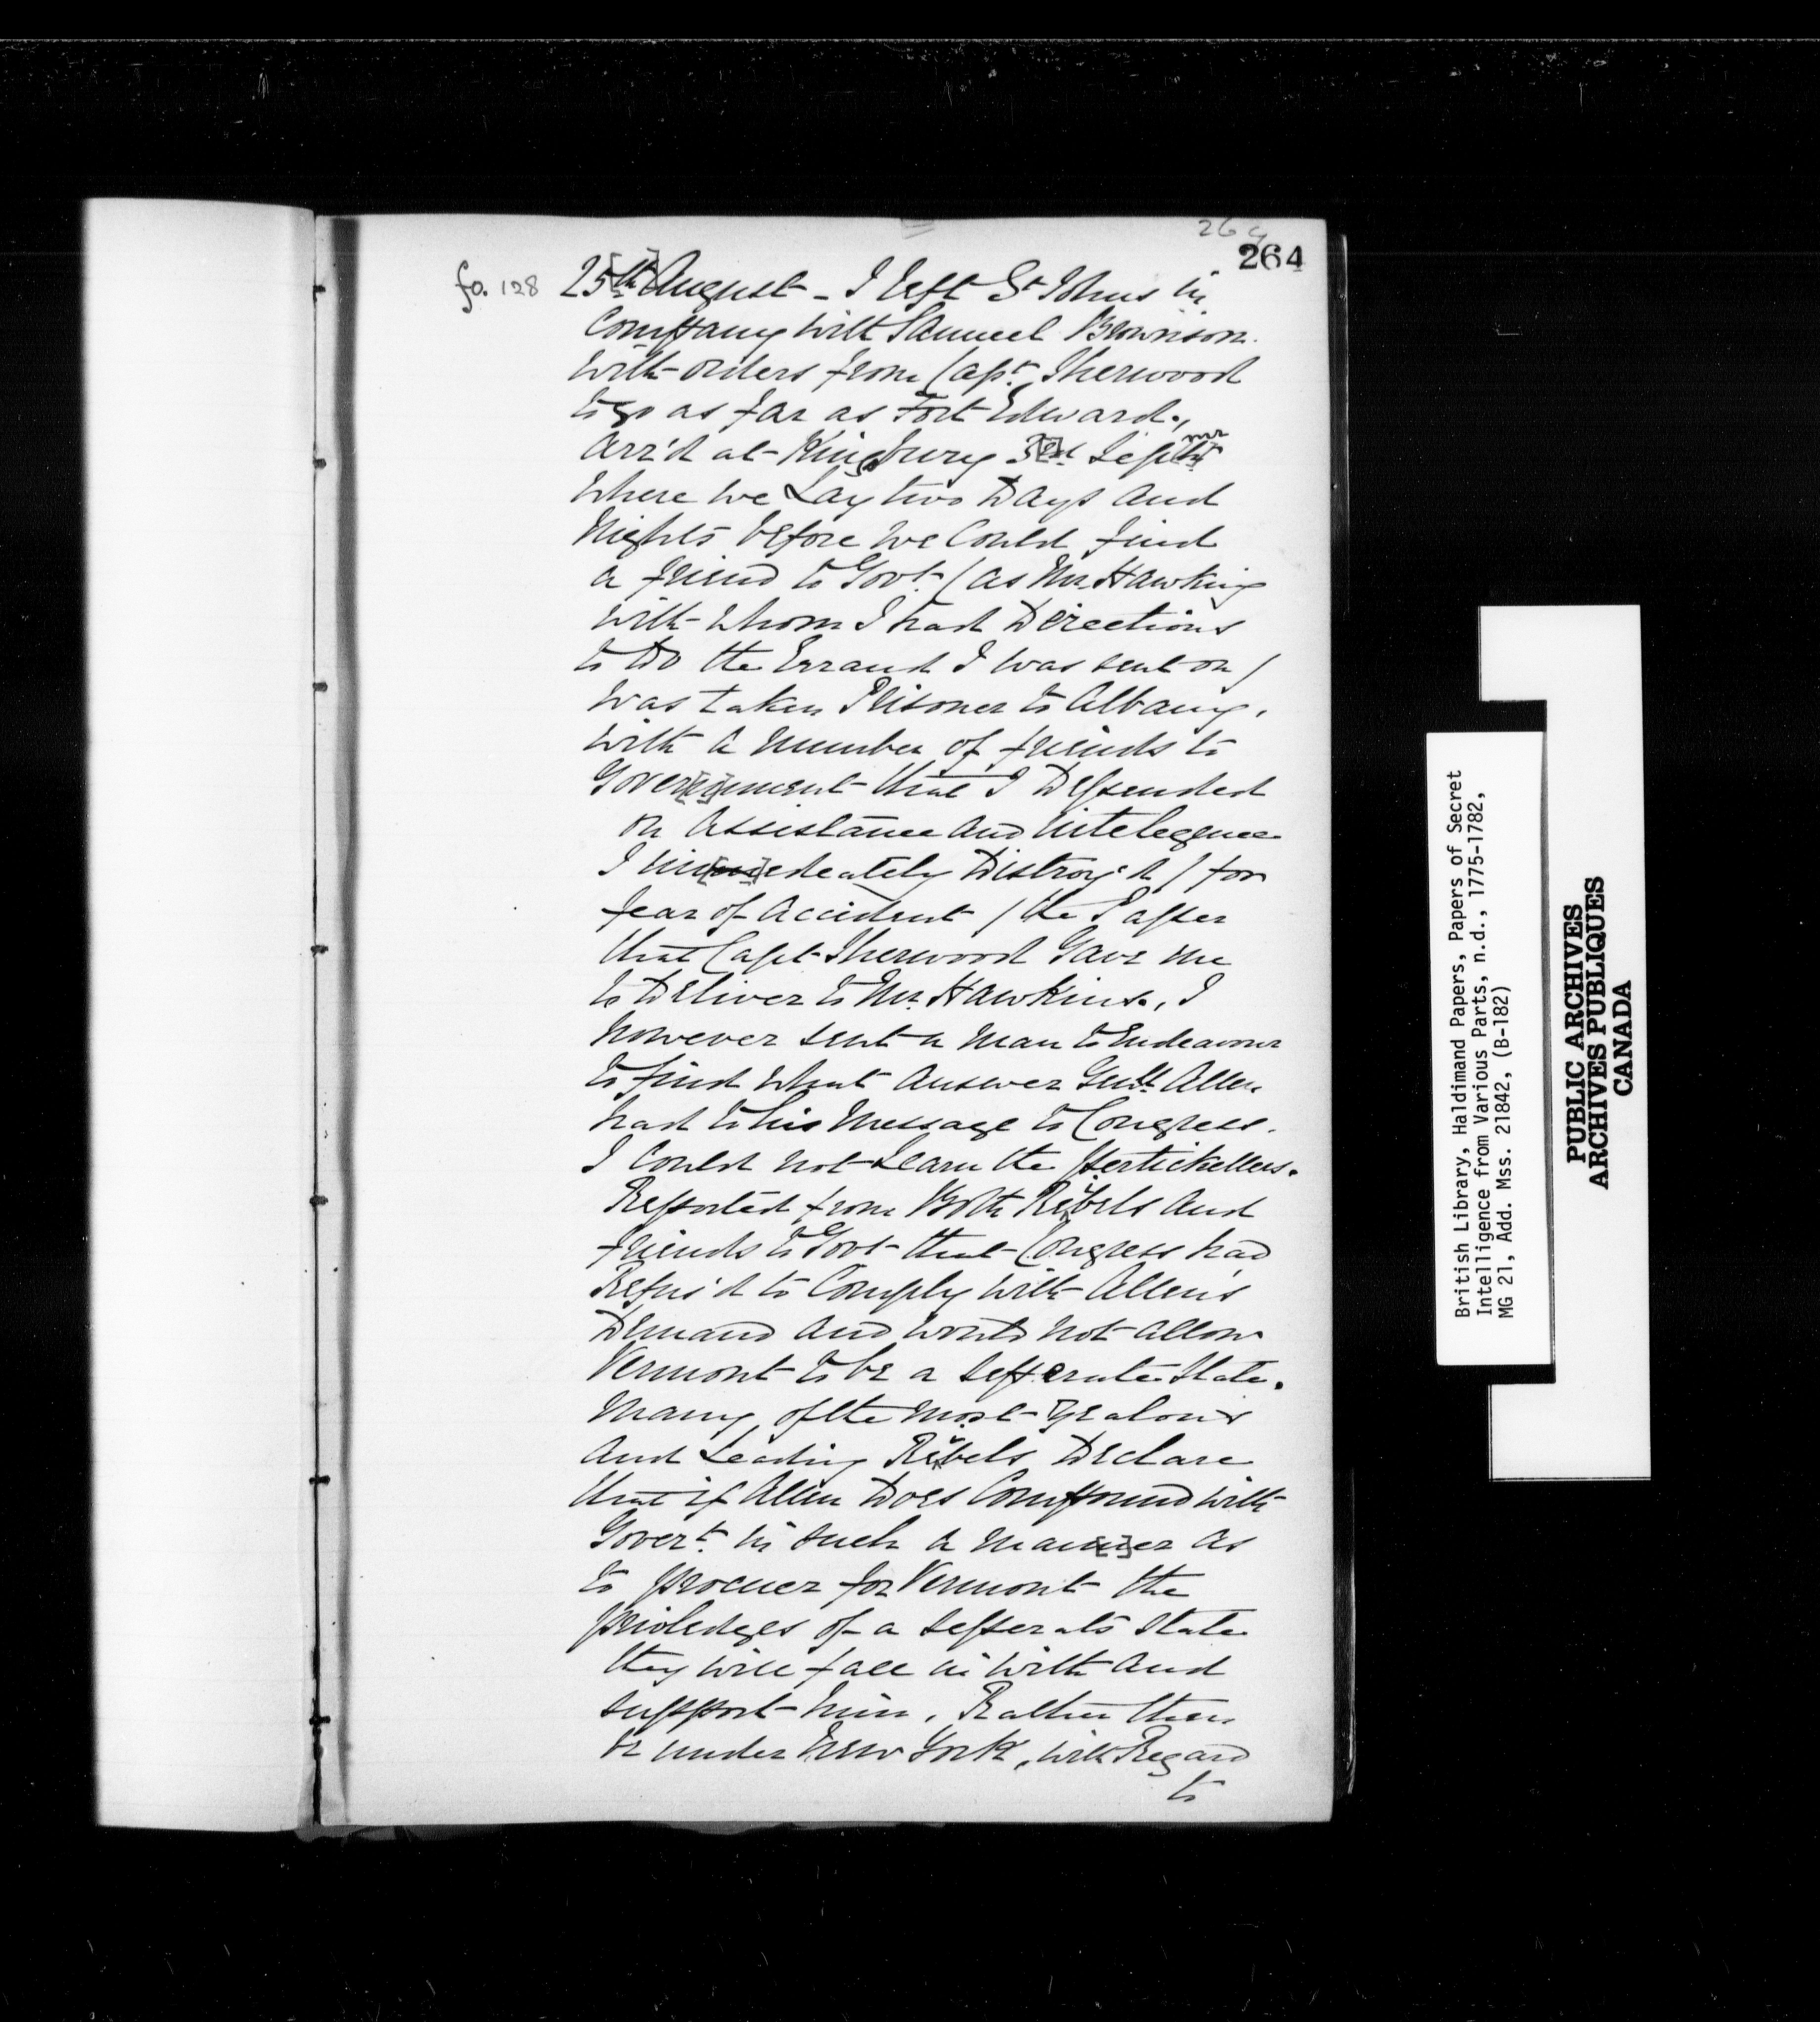 264
264
fo. 128
25[th] August - I left St Johns in
Company with Samuel Brownson.
With orders from Capt. Sherwood
to go as far as Fort Edward.,
Arr'd at Kingsbury 3[rd] Septmr
Where we Lay two Days and
Nights before we Could find
a friend to Govt. (as Mr. Hawkins
With whom I had Directions
to Do the Errand I was sent on)
Was taken Prisoner to Albany,
With a number of friends to
Gover[n]ment that I Depended
on Assistance and Intelegence
I im[m]edeately Distroy'd / for
fear of Accident / the Paper
that Capt Sherwood Gave me
to Deliver to Mr. Hawkins., I
however sent a man to Endeavour
to find what Answer Genll. Allen
had to his Message to Congress.
I Could not Learn the pertickellers.
Reported from Both Rebels and
friends to Govt that Congress had
Refus'd to Comply with Allen's
Demand and would not allow
Vermont to be a Sepperate State.
Many of the most Zealous
And Leading Rebels Declare
that if Allen Does Compound with
Govert. in such a man[n]er as
to procuer for Vermont the
priviledges of a Sepperate State
they will fall in with and
support him, Rather then
be under New York, With Regard
to
British Library, Haldimand Papers, Papers of Secret
Intelligence from Various Parts, n.d., 1775-1782,
MG 21, Add. Mss. 21842, (B-182)
PUBLIC ARCHIVES
ARCHIVES PUBLIQUES
CANADA